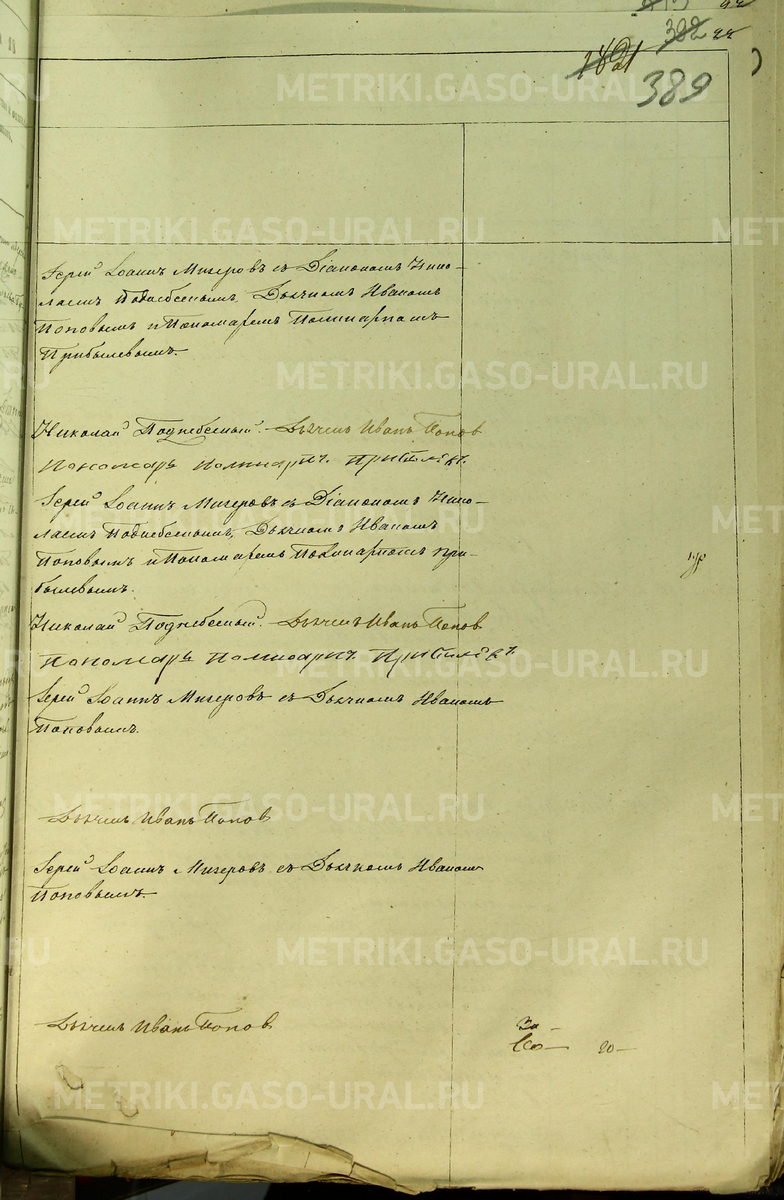 389
Іерей Іоаннъ Мизеровъ съ Діакономъ Нико-
лаемъ Поднебеснымъ, Дьячкомъ Иваномъ
Поповымъ и Пономаремъ Поликарпомъ
Прибылевымъ.
Николай Поднебесный. Дьячекъ Иванъ Попов
Пономарь Поликарпъ Прибылевъ.
Іерей Іоаннъ Мизеровъ съ Діакономъ Нико-
лаемъ Поднебеснымъ, Дьячкомъ Иваномъ
Поповымъ и Пономаремъ Поликарпомъ при-
былевымъ.
Николай Поднебесный. Дьячекъ Иванъ Попов
Пономарь Поликарпъ Прибылевъ.
Іерей Іоаннъ Мизеровъ съ Дьячкомъ Иваномъ
Поповымъ.
Дьячекъ Иванъ Попов
Іерей Іоаннъ Мизеровъ съ Дьячкомъ Иваномъ
Поповымъ.
Дьячекъ Иванъ Попов
20—
METRIKI.GASO-URAL.RU